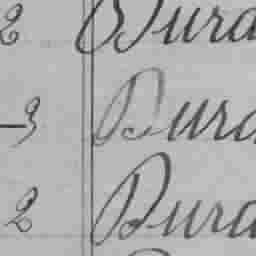 2 Dura
-3 Dura
2 Dura